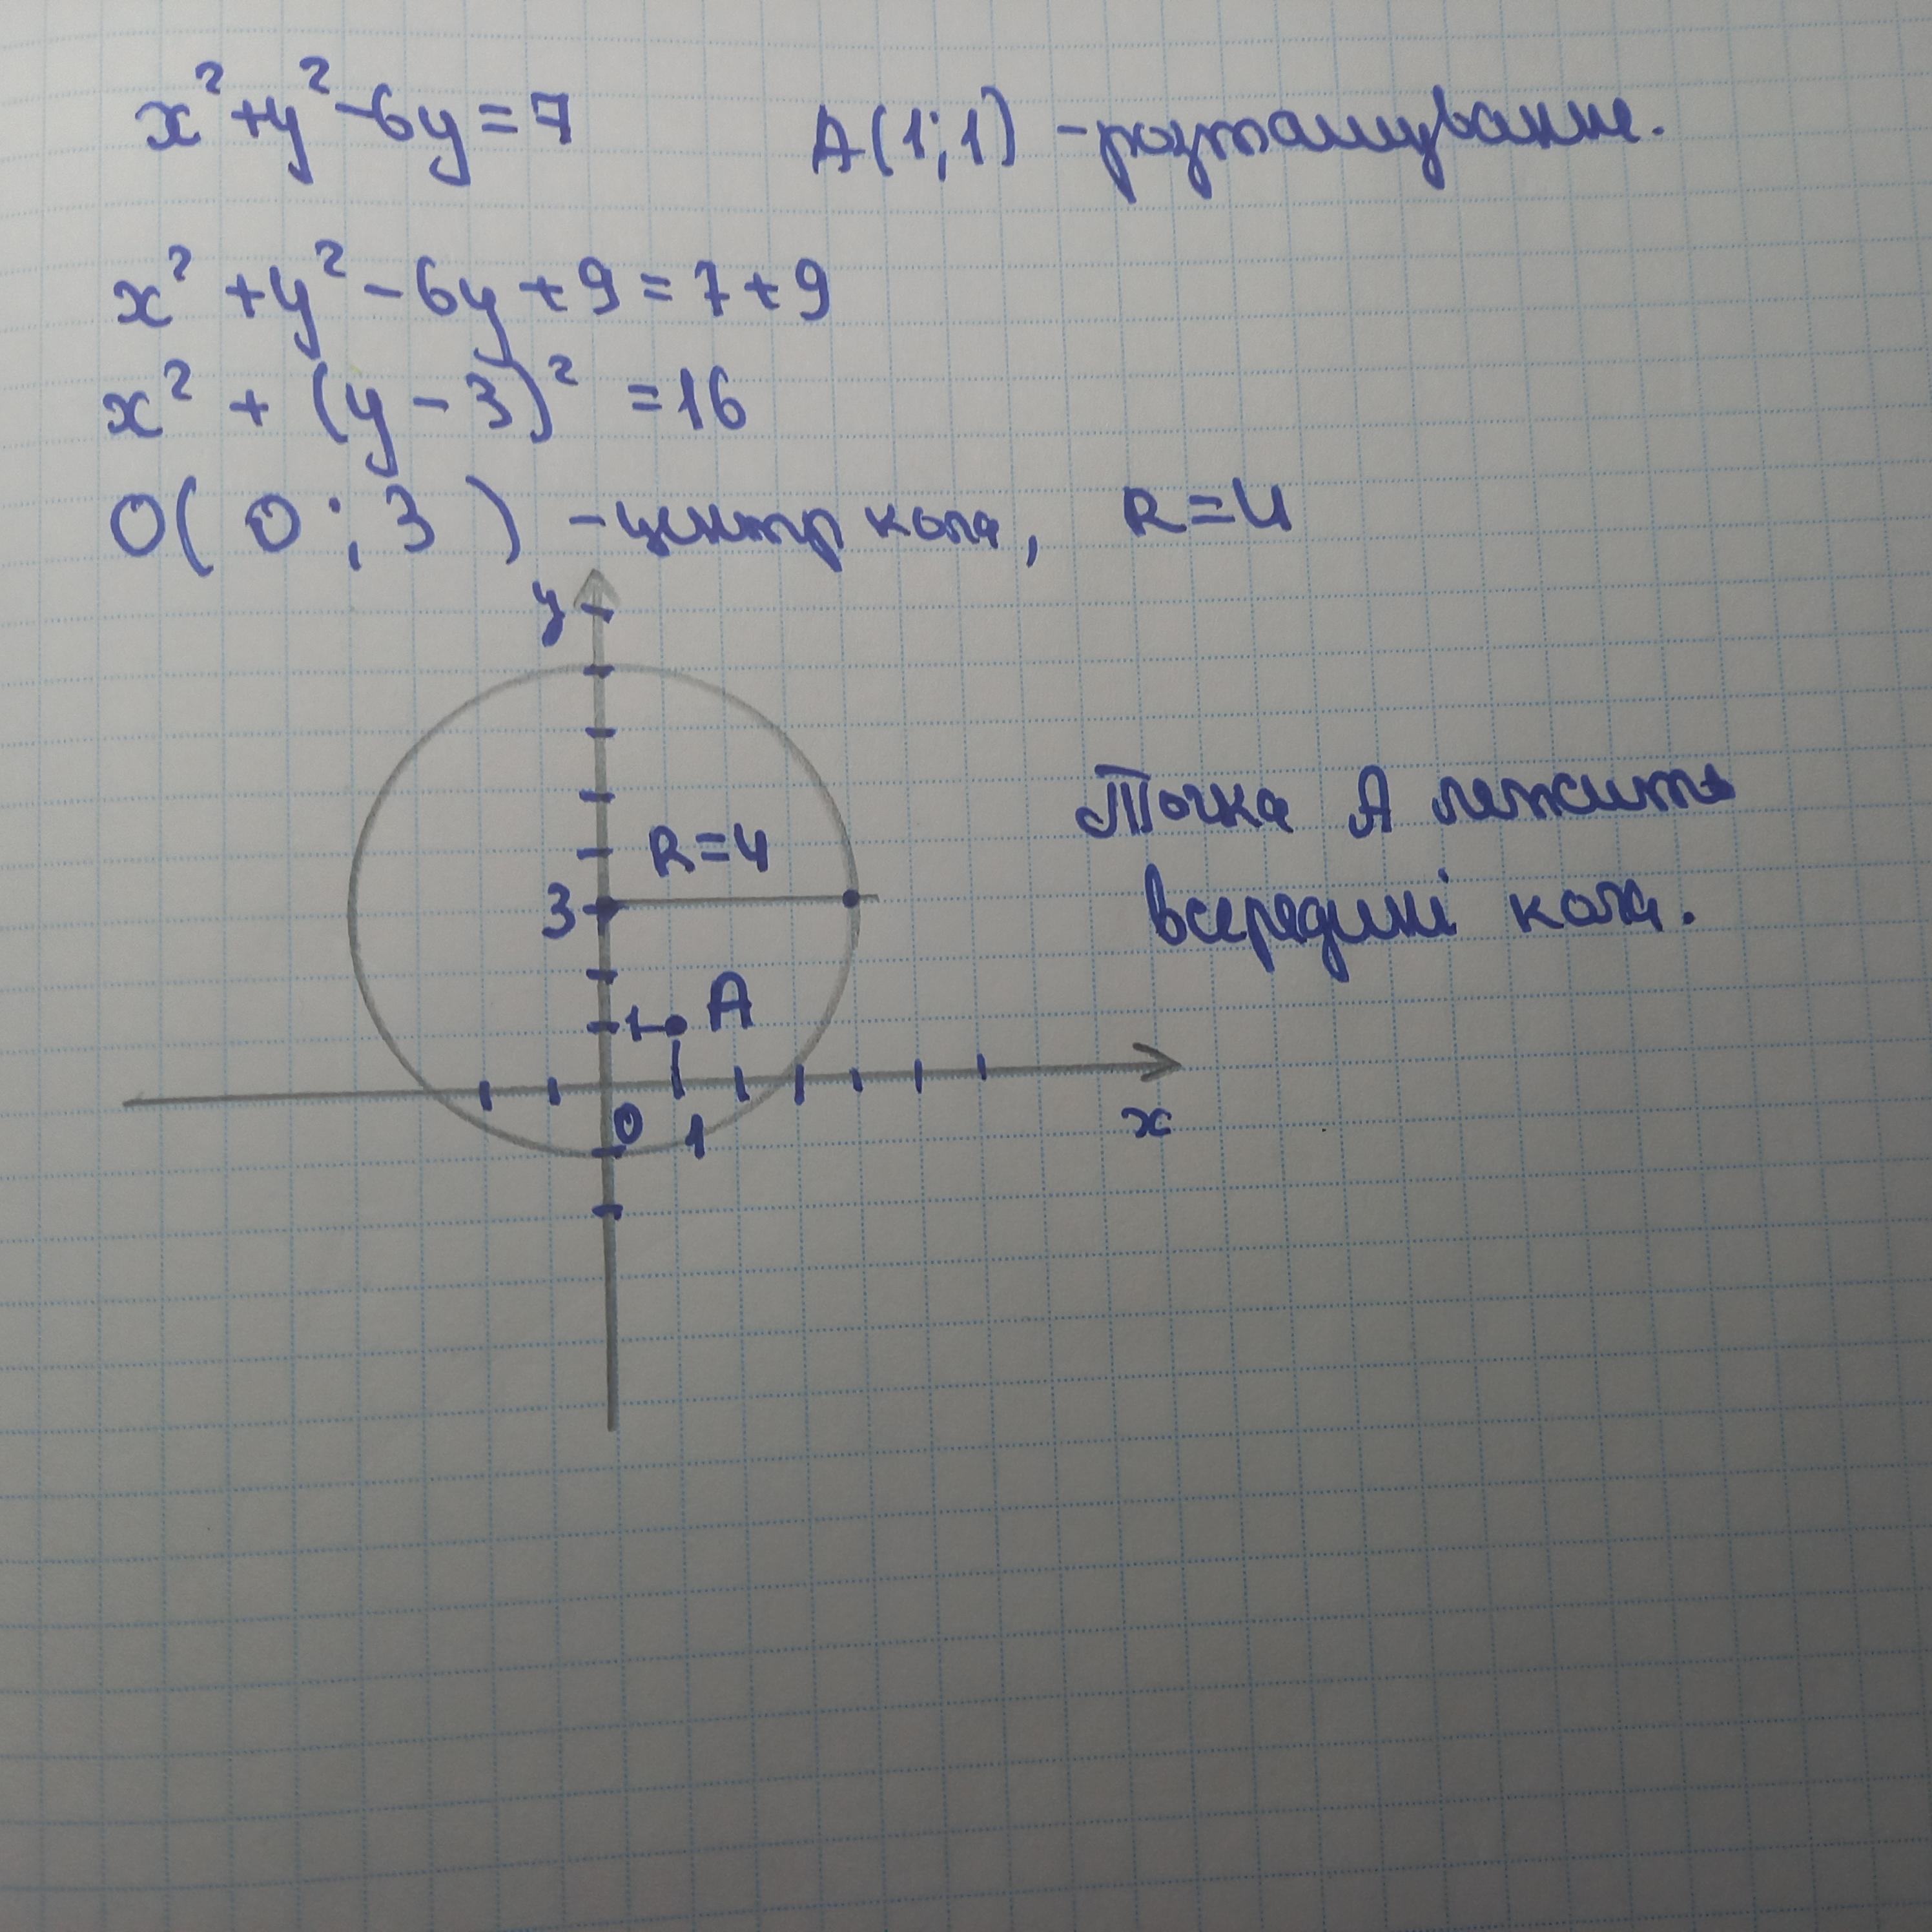 x²+y²-6y=7 A(1;1) -розташування.
x²+y²-6y+9=7+9
x²+(y-3)²=16
O(0;3) -центр кола, R=4
y
R=4
3
Точка A лежить
всередині кола.
A
1
0 1
x